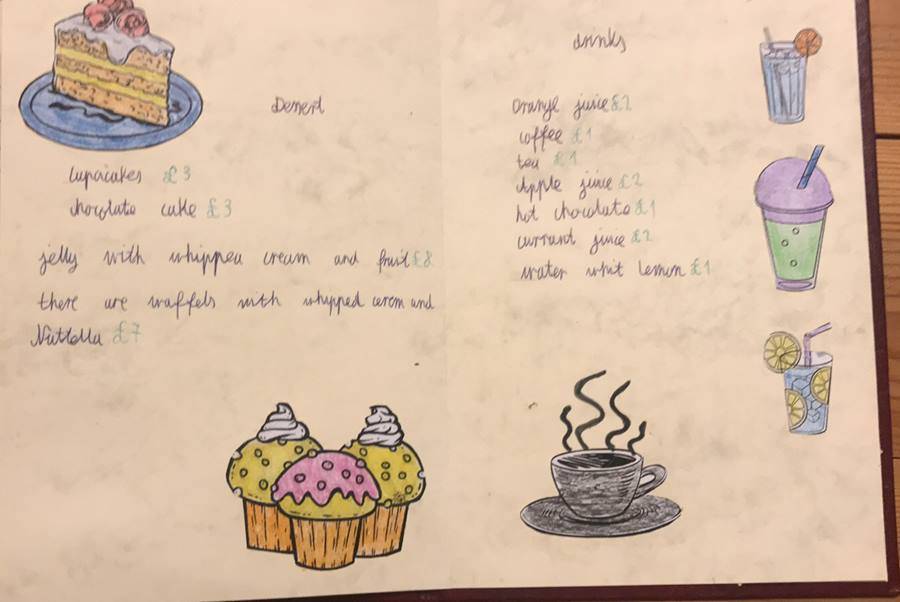 Dessert
cupacakes £3
chocolate cake £3
jelly with whipped cream and fruit £8
there are waffels with whipped cerem and
Nuttella £7
drinks
oranye juice £2
coffee £1
tea £1
Apple juice £2
hot chocolate £1
currant juice £2
water whit lemon £1